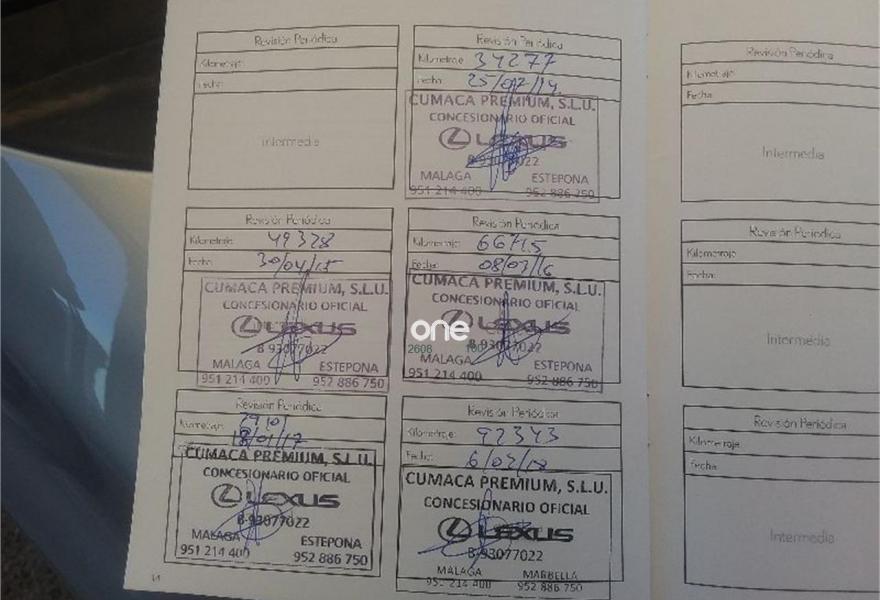 Revisión Periódica
Kilometraje
Fecha
Intermedia
Revisión Periódica
Kilometraje 34277
Fecha 25/07/14
CUMACA PREMIUM, S.L.U.
CONCESIONARIO OFICIAL
LEXUS
B-93077022
MALAGA ESTEPONA
951 214 400 952 886 750
Revisión Periódica
Kilometraje 49328
Fecha 30/04/15
CUMACA PREMIUM, S.L.U.
CONCESIONARIO OFICIAL
LEXUS
B-93077022
MALAGA ESTEPONA
951 214 400 952 886 750
Revisión Periódica
Kilometraje 66715
Fecha 08/03/16
CUMACA PREMIUM, S.L.U.
CONCESIONARIO OFICIAL
LEXUS
one
B-93077022
2608
MALAGA ESTEPONA
951 214 400 952 886 750
Revisión Periódica
Kilometraje
18/01/17
CUMACA PREMIUM, S.L.U.
CONCESIONARIO OFICIAL
LEXUS
B-93077022
MALAGA ESTEPONA
951 214 400 952 886 750
Revisión Periódica
Kilometraje 92343
Fecha 6/02/18
CUMACA PREMIUM, S.L.U.
CONCESIONARIO OFICIAL
LEXUS
B-93077022
MALAGA MARBELLA
951 214 400 952 886 750
14
Revisión Periódica
Kilometraje
Fecha
Intermedia
Revisión Periódica
Kilometraje
Fecha
Intermedia
Revisión Periódica
Kilometraje
Fecha
Intermedia